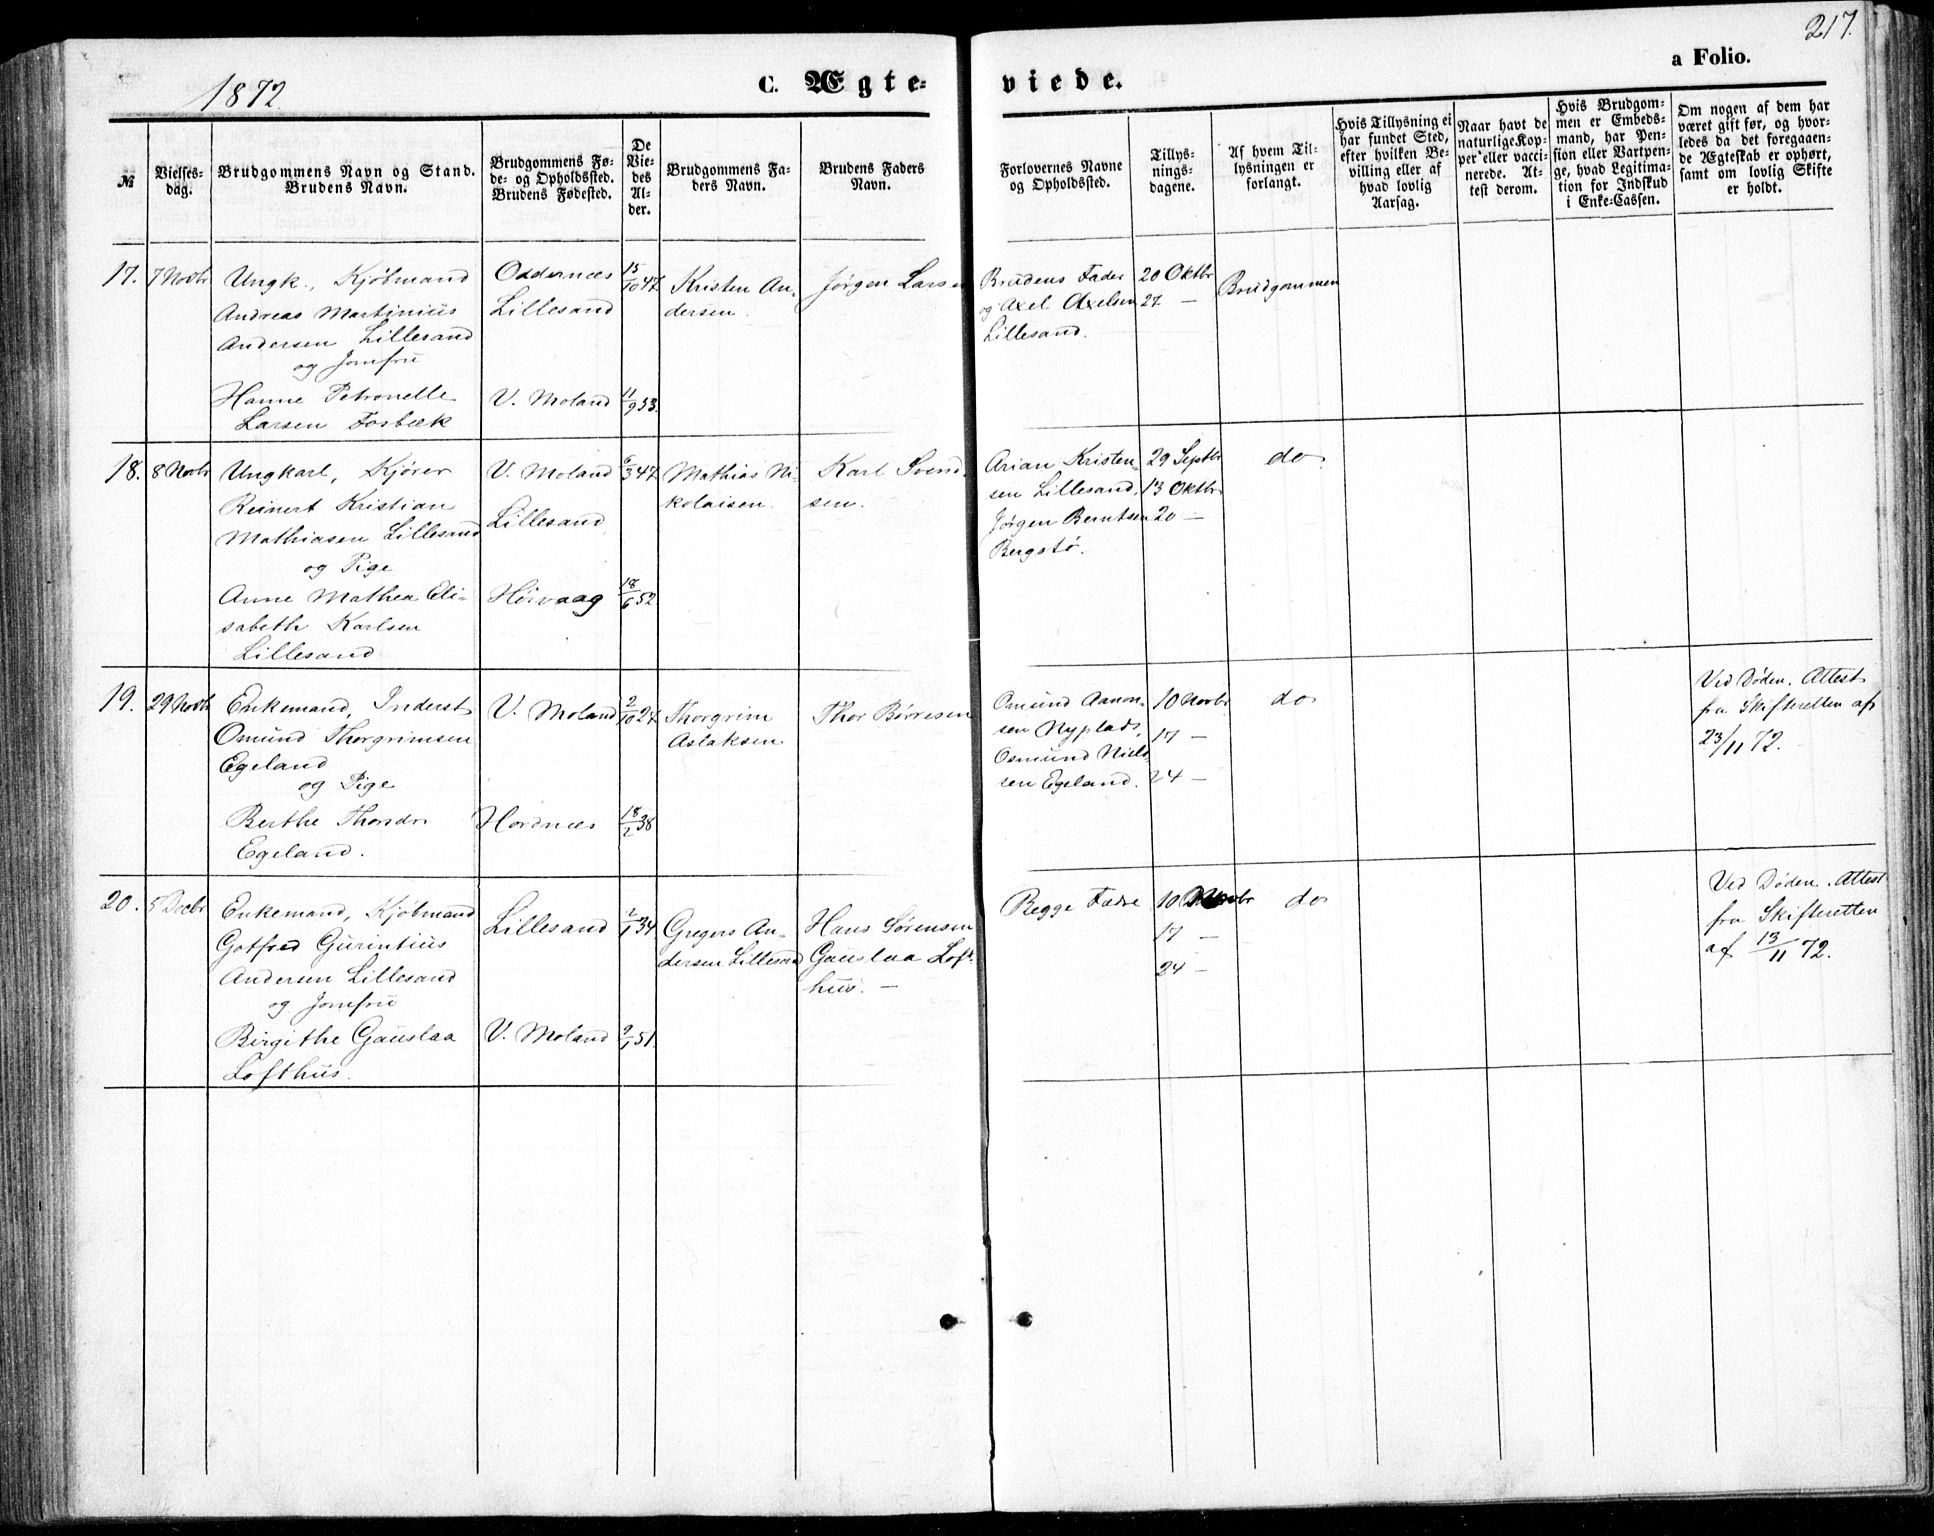 217.
1872
C. Ægte-
viede.
a Folio.
№
Vielses-
dag.
Brudgommens Navn og Stand.
Brudens Navn.
Brudgommens Fø-
de- og Opholdssted.
Brudens Fødested.
De
Vie-
des
Al-
der.
Brudgommens Fa-
ders Navn.
Brudens Faders
Navn.
Forlovernes Navne
og Opholdssted.
Tillys-
nings-
dagene.
Af hvem Til-
lysningen er
forlangt.
Hvis Tillysning ei
har fundet Sted,
efter hvilken Be-
villing eller af
hvad lovlig
Aarsag.
Naar havt de
naturlige Kop-
per eller vacci-
nerede. At-
test derom.
Hvis Brudgom-
men er Embeds-
mand, har Pen-
sion eller Vartpen-
ge, hvad Legitima-
tion for Indskud
i Enke-Cassen.
Om nogen af dem har
været gift før, og hvor-
ledes da det foregaaen-
de Ægteskab er ophørt,
samt om lovlig Skifte
er holdt.
17.
7 Novbr
Ungk., Kjøbmand
Andreas Martinius
Andersen Lillesand
og Jomfru
Hanne Petronelle
Larsen Fosbæk
Oddernæs
Lillesand
V. Moland
15/10 47
11/9 53.
Kristen An-
dersen.
Jørgen Larsen
Brudens Fader
og Axel Axelsen
Lillesand.
20 Oktbr
27 —
Brudgommen
18.
8 Novbr
Ungkarl, Kjører
Reinert Kristian
Mathiasen Lillesand
og Pige
Anne Mathea Eli-
sabeth Karlsen
Lillesand
V. Moland
Lillesand
Høivaag
6/3 47
18/6 52.
Mathias Ni-
kolaisen.
Karl Svend-
sen.
Arian Kristen-
sen Lillesand,
Jørgen Berntsen
Bergstø.
29 Septbr
13 Oktbr
20 —
do.
19.
29 Novbr
Enkemand, Inderst
Omund Thorgrimsen
Egeland
og Pige
Berthe Thorsdr
Egeland.
V. Moland
Hordnæs
2/10 27
18/2 38
Thorgrim
Aslaksen
Thor Børresen
Omund Aanon-
sen Nyplads,
Osmund Niels-
sen Egeland.
10 Novbr
17 —
24 —
do
Ved Døden. Attest
fra Skifteretten af
23/11 72.
20.
5 Decbr
Enkemand, Kjøbmand
Gotfred Gurintius
Andersen Lillesand
og Jomfru
Birgithe Gauslaa
Lofthus.
Lillesand
V. Moland
2/1 34
9/1 51.
Gregers An-
dersen Lillesand
Hans Sørensen
Gauslaa Loft-
hus. —
Begge Fædre
10 Novbr
17 —
24 —
do
Ved Døden. Attest
fra Skifteretten
af 13/11 72.